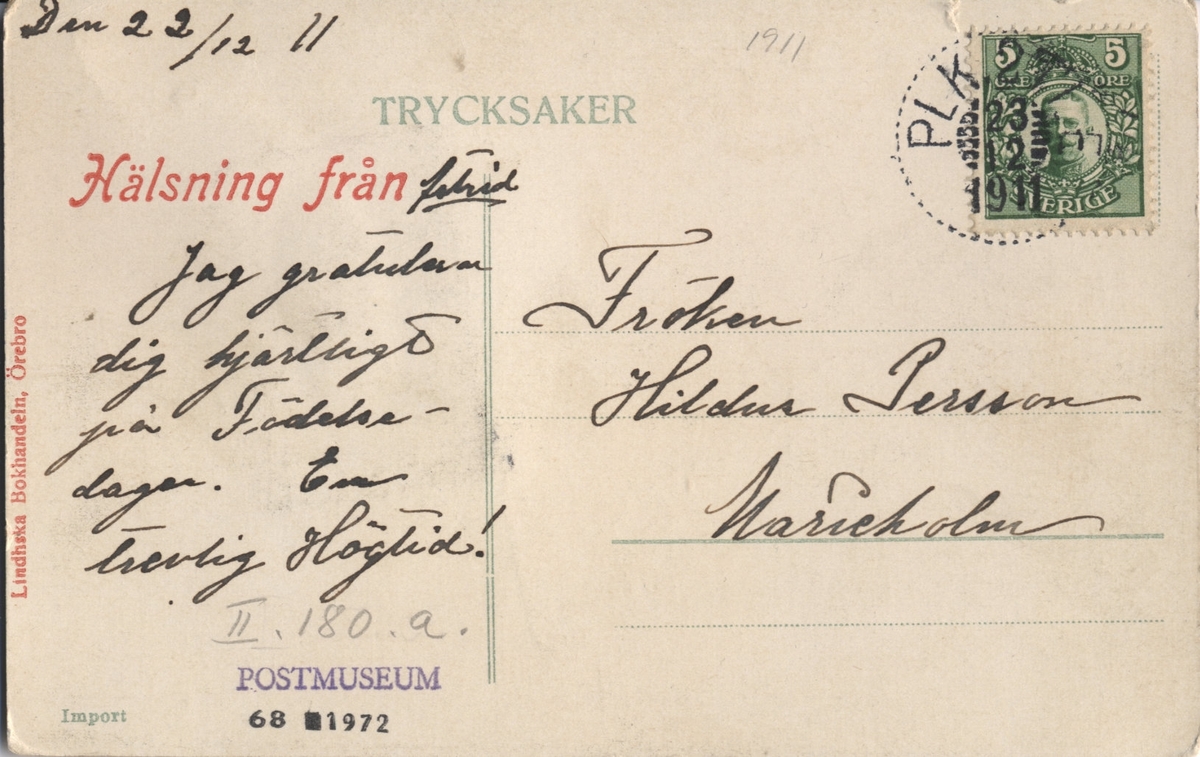 Den 22/12 11
1911
TRYCKSAKER
5 5
ÖRE ÖRE
SVERIGE
PLK 2
23
12
1911
Hälsning från Astrid
Jag gratulerar
dig hjärtligt
på Födelse-
dagen. En
trevlig Högtid!
Fröken
Hildur Persson
Marieholm
II. 180. a.
POSTMUSEUM
68 1972
Import
Lindhska Bokhandeln, Örebro